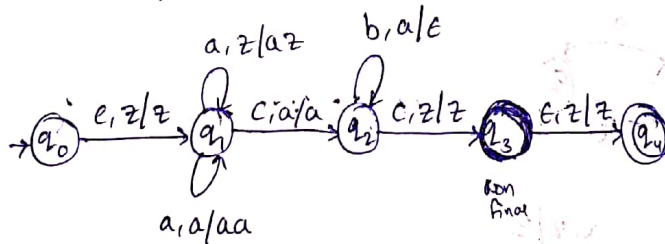 a, z/az
b, a/ε
q0
ε, z/z
q1
c, a/a
q2
c, z/z
q3
ε, z/z
q4
a, a/aa
non
final